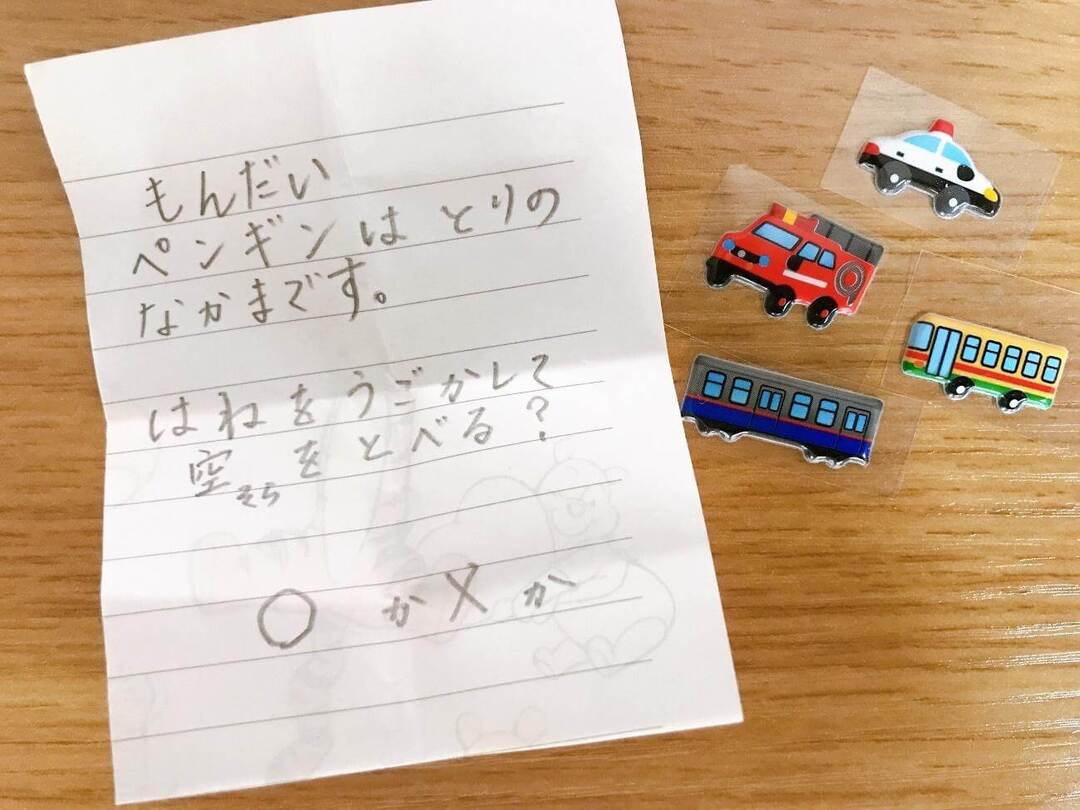 もんだい
ペンギンはとりの
なかまです。
はねをうごかして
空をとべる？
そら
○か×か